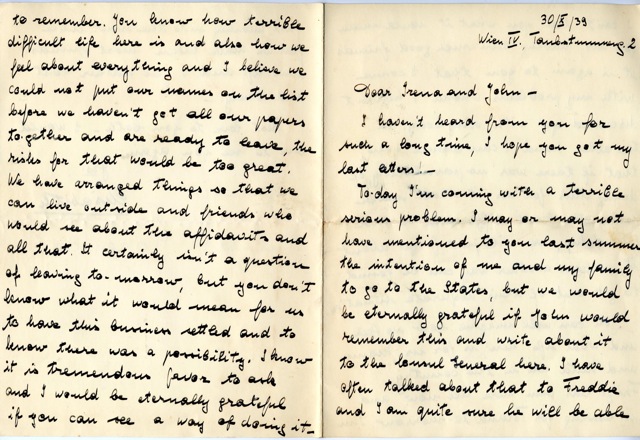 30/X/39
Wien IV. Taubstummeng. 2
Dear Irena and John –
I haven't heard from you for
such a long time, I hope you got my
last letters! –
To-day I'm coming with a terrible
serious problem. I may or may not
have mentioned to you last summer
the intention of me and my family
to go to the States, but we would
be eternally grateful if John would
remember this and write about it
to the Consul General here. I have
often talked about that to Freddie
and I am quite sure he will be able
to remember. You know how terrible
difficult life here is and also how we
feel about everything and I believe we
could not put our names on the list
before we haven't got all our papers
to-gether and are ready to leave, the
risks for that would be too great.
We have arranged things so that we
can live outside and friends who
would see about the affidavits and
all that. It certainly isn't a question
of leaving to-morrow, but you don't
know what it would mean for us
to have this business settled and to
know there was a possibility. I know
it is tremendous favor to ask
and I would be eternally grateful
if you can see a way of doing it –